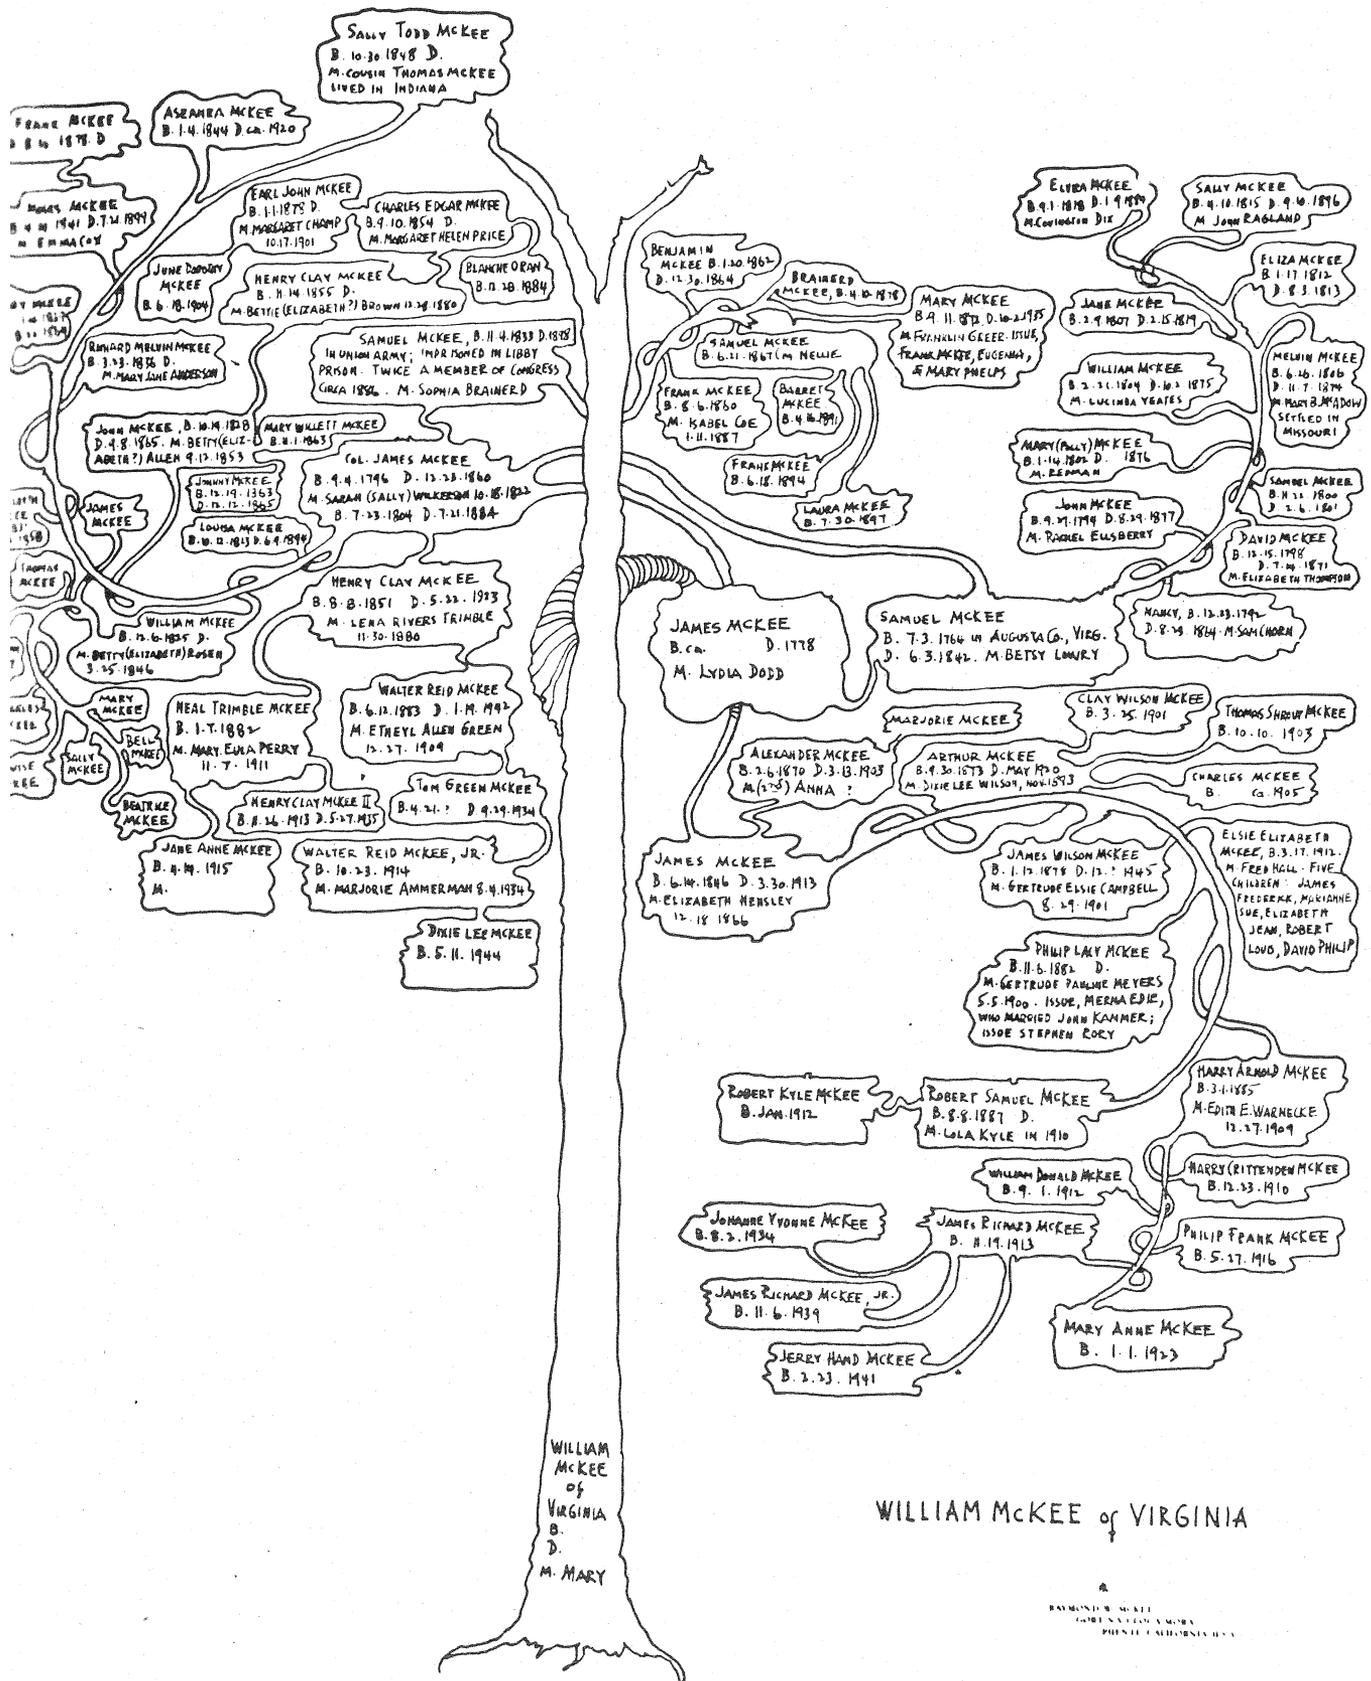 SALLY TODD MCKEE
B. 10.30.1848 D.
M. COUSIN THOMAS MCKEE
LIVED IN INDIANA
FRANK MCKEE
1878. D
ASRAHRA MCKEE
B. 1.4.1844 D. CA. 1920
D. 7.21.1899
M EMMA COX
EARL JOHN MCKEE
B. 1.1.1878 D.
M. MARGARET CHAMP
10.17.1901
CHARLES EDGAR MCKEE
B. 9.10.1854 D.
M. MARGARET HELEN PRICE
JUNE DOROTHY
MCKEE
B. 6.18.1904
HENRY CLAY MCKEE
B. 11.14.1855 D.
M. BETTIE (ELIZABETH?) BROWN 12.28.1880
BLANCHE ORAN
B. 12.28.1884
RICHARD MELVIN MCKEE
B. 3.23.1836 D.
M. MARY JANE ANDERSON
SAMUEL MCKEE, B. 11.4.1833 D. 1898
IN UNION ARMY; IMPRISONED IN LIBBY
PRISON. TWICE A MEMBER OF CONGRESS
CIRCA 1886. M. SOPHIA BRAINERD
JOHN MCKEE, B. 10.14.1828
D. 9.8.1865. M. BETTY (ELIZ-
ABETH?) ALLEN 9.12.1853
MARY WILLETT MCKEE
B. 11.1.1863
JOHNNY MCKEE
B. 12.19.1363
D. 12.12.1865
COL. JAMES MCKEE
B. 9.4.1796 D. 12.23.1860
M. SARAH (SALLY) WILKERSON 10.18.1822
B. 7.23.1804 D. 7.21.1884
JAMES
MCKEE
LOUISA MCKEE
B. 10.12.1813 D. 6.9.1894
THOMAS
MCKEE
HENRY CLAY MCKEE
B. 8.8.1851 D. 5.22.1923
M. LENA RIVERS TRIMBLE
11.30.1880
WILLIAM MCKEE
B. 12.6.1825 D.
M. BETTY (ELIZABETH) ROSEN
3.25.1846
MARY
MCKEE
BELL
MCKEE
SALLY
MCKEE
BEATRICE
MCKEE
NEAL TRIMBLE MCKEE
B. 1.7.1882
M. MARY EULA PERRY
11.7.1911
WALTER REID MCKEE
B. 6.12.1883 D. 1.19.1942
M. ETHEYL ALLEN GREEN
12.27.1909
HENRY CLAY MCKEE II
B. 11.26.1913 D. 5.27.1935
TOM GREEN MCKEE
B. 4.21.? D. 9.29.1934
JANE ANNE MCKEE
B. 4.14.1915
M.
WALTER REID MCKEE, JR.
B. 10.23.1914
M. MARJORIE AMMERMAN 8.4.1934
DIXIE LEE MCKEE
B. 5.11.1944
BENJAMIN
MCKEE B. 1.20.1862
D. 12.30.1864
BRAINERD
MCKEE, B. 4.10.1878
MARY MCKEE
B. 9.11.1872, D. 10.2.1935
M. FRANKLIN GREER. ISSUE,
FRANK MCKEE, EUGENIA,
& MARY PHELPS
SAMUEL MCKEE
B. 6.21.1867 (M NELLIE
FRANK MCKEE
B. 8.6.1860
M. ISABEL COE
1.11.1887
BARRET
MCKEE
B. 4.16.1891
FRANK MCKEE
B. 6.18.1894
LAURA MCKEE
B. 7.30.1897
ELVIRA MCKEE
B. 9.1.1818 D. 1.9.1880
M. COVINGTON DIX
SALLY MCKEE
B. 4.10.1815 D. 9.10.1896
M JOHN RAGLAND
ELIZA MCKEE
B. 1.17.1812
D. 8.3.1813
JANE MCKEE
B. 2.9.1807 D. 2.15.1819
WILLIAM MCKEE
B. 2.21.1804 D. 10.2.1875
M. LUCINDA YEATES
MELVIN MCKEE
B. 6.26.1806
D. 11.7.1874
M. MARY B. MCADOW
SETTLED IN
MISSOURI
MARY (POLLY) MCKEE
B. 1.14.1802 D. 1876
M. REDMAN
SAMUEL MCKEE
B. 11.22.1800
D. 2.6.1801
JOHN MCKEE
B. 9.29.1794 D. 8.29.1877
M. RACHEL ELLSBERRY
DAVID MCKEE
B. 12.15.1798
D. 7.14.1871
M. ELIZABETH THOMPSON
NANCY, B. 12.23.1792
D. 8.23.1864. M. SAM CHORN
JAMES MCKEE
B. CA. D. 1778
M. LYDIA DODD
SAMUEL MCKEE
B. 7.3.1764 IN AUGUSTA CO., VIRG.
D. 6.3.1842. M. BETSY LOWRY
MARJORIE MCKEE
CLAY WILSON MCKEE
B. 3.25.1901
THOMAS SHROUT MCKEE
B. 10.10.1903
ALEXANDER MCKEE
B. 2.6.1870 D. 3.13.1903
M. (2ND) ANNA ?
ARTHUR MCKEE
B. 9.30.1873 D. MAY 1920
M. DIXIE LEE WILSON, NOV. 1893
CHARLES MCKEE
B. CA. 1905
JAMES MCKEE
B. 6.14.1846 D. 3.30.1913
M. ELIZABETH HENSLEY
12.18.1866
JAMES WILSON MCKEE
B. 1.12.1878 D. 12.?.1945
M. GERTRUDE ELSIE CAMPBELL
8.29.1901
ELSIE ELIZABETH
MCKEE, B. 3.17.1912.
M. FRED HALL. FIVE
CHILDREN: JAMES
FREDERICK, MARIANNE
SUE, ELIZABETH
JEAN, ROBERT
LOUD, DAVID PHILIP
PHILIP LACY MCKEE
B. 11.6.1882 D.
M. GERTRUDE PAULINE MEYERS
5.5.1900. ISSUE, MERNA EDIE,
WHO MARRIED JOHN KAMMER;
ISSUE STEPHEN RORY
ROBERT KYLE MCKEE
B. JAN. 1912
ROBERT SAMUEL MCKEE
B. 8.8.1887 D.
M. LOLA KYLE IN 1910
HARRY ARNOLD MCKEE
B. 3.1.1885
M. EDITH E. WARNECKE
12.27.1909
WILLIAM DONALD MCKEE
B. 9.1.1912
HARRY CRITTENDEN MCKEE
B. 12.23.1910
JOHANNE YVONNE MCKEE
B. 8.2.1934
JAMES RICHARD MCKEE
B. 11.19.1913
PHILIP FRANK MCKEE
B. 5.27.1916
JAMES RICHARD MCKEE, JR.
B. 11.6.1939
MARY ANNE MCKEE
B. 1.1.1923
JERRY HAND MCKEE
B. 2.23.1941
WILLIAM
MCKEE
of
VIRGINIA
B.
D.
M. MARY
WILLIAM MCKEE of VIRGINIA
RAYMOND W. MCKEE